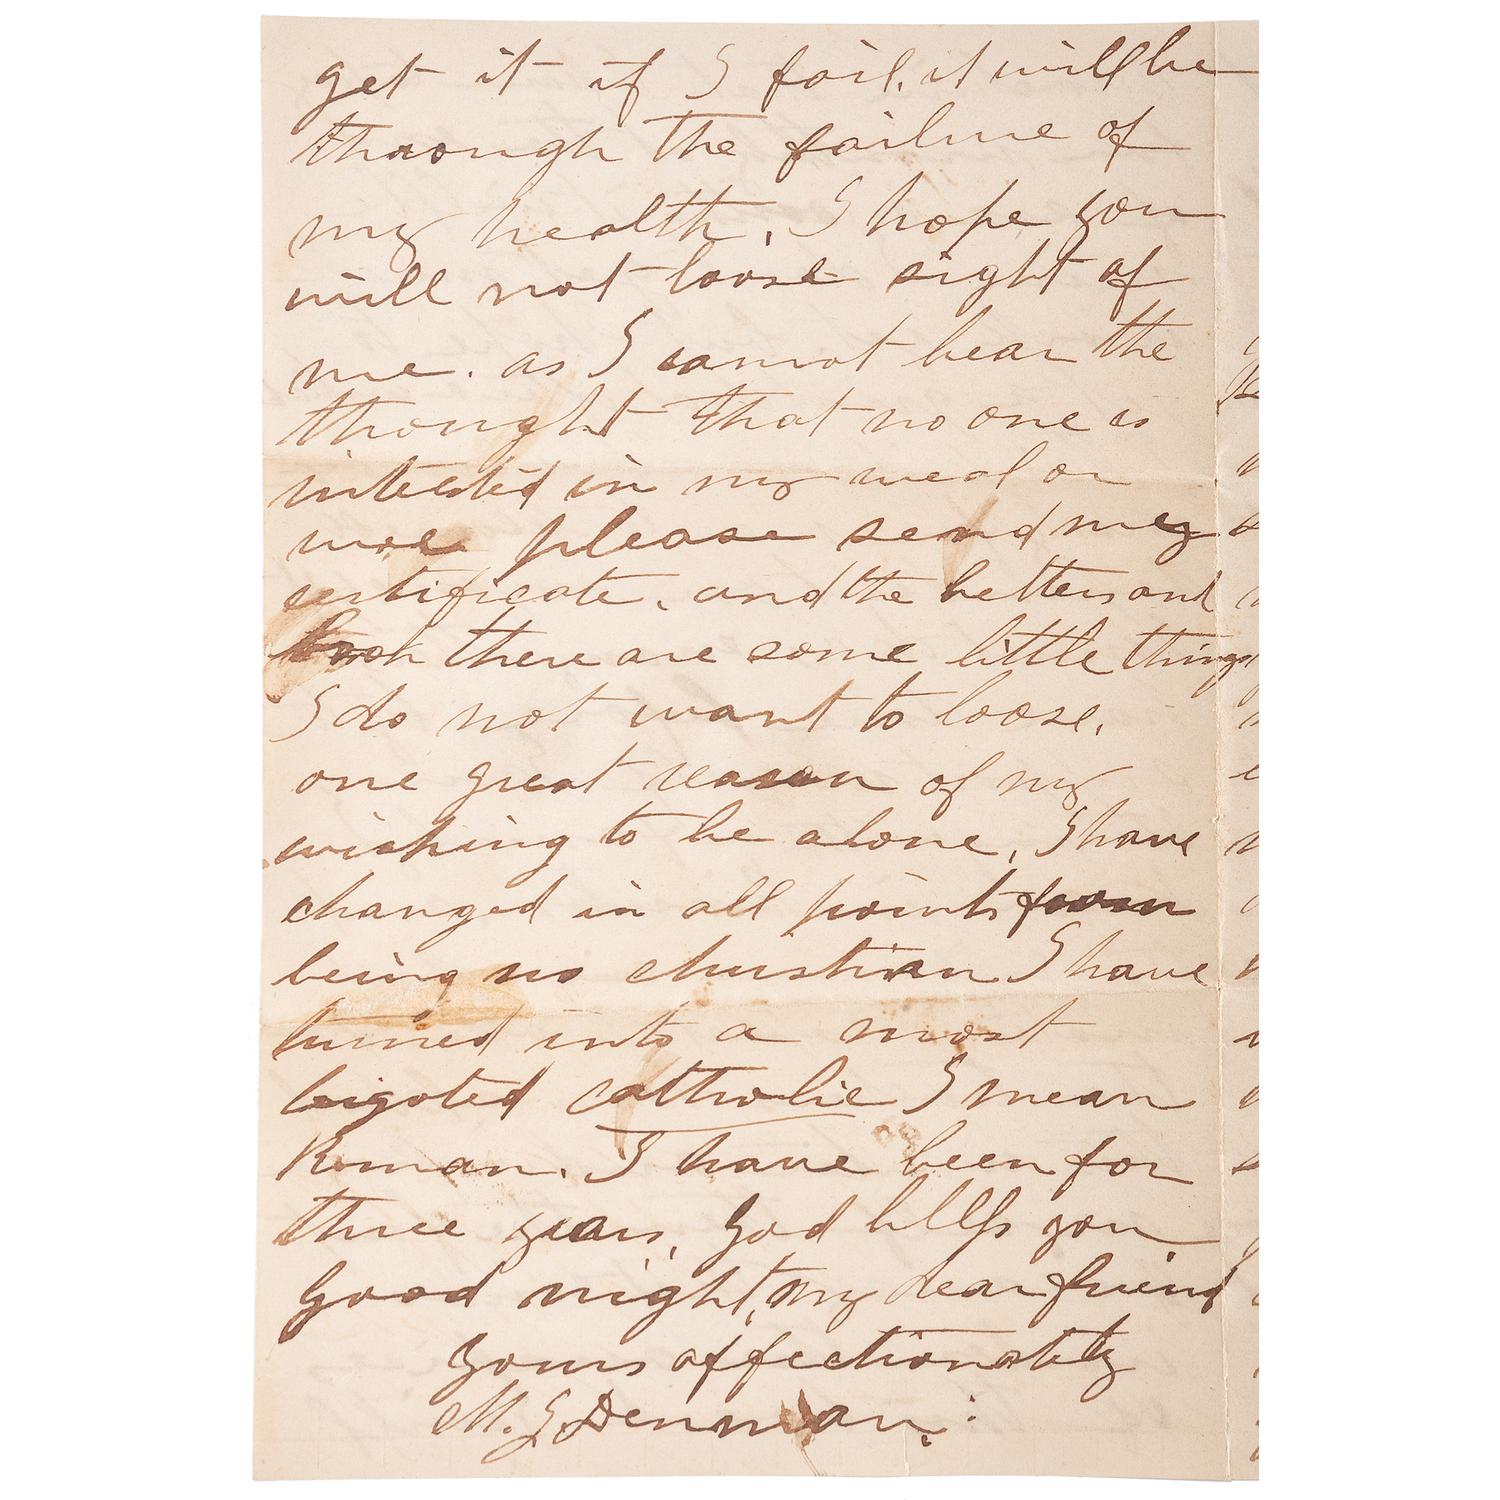 get it if I fail. it will be
through the failure of
my health, I hope you
will not loose sight of
me. as I cannot bear the
thought that no one is
intested in my weal or
woe please send my
certificate. and the letters and
book there are some little things
I do not want to loose.
one great reason of my
wishing to be alone, I have
changed in all points from
being no christian I have
turned into a most
bigoted catholic I mean
Roman. I have been for
three years, God bless you
Good night, my dear friend
yours affectionately
M. G. Denman.